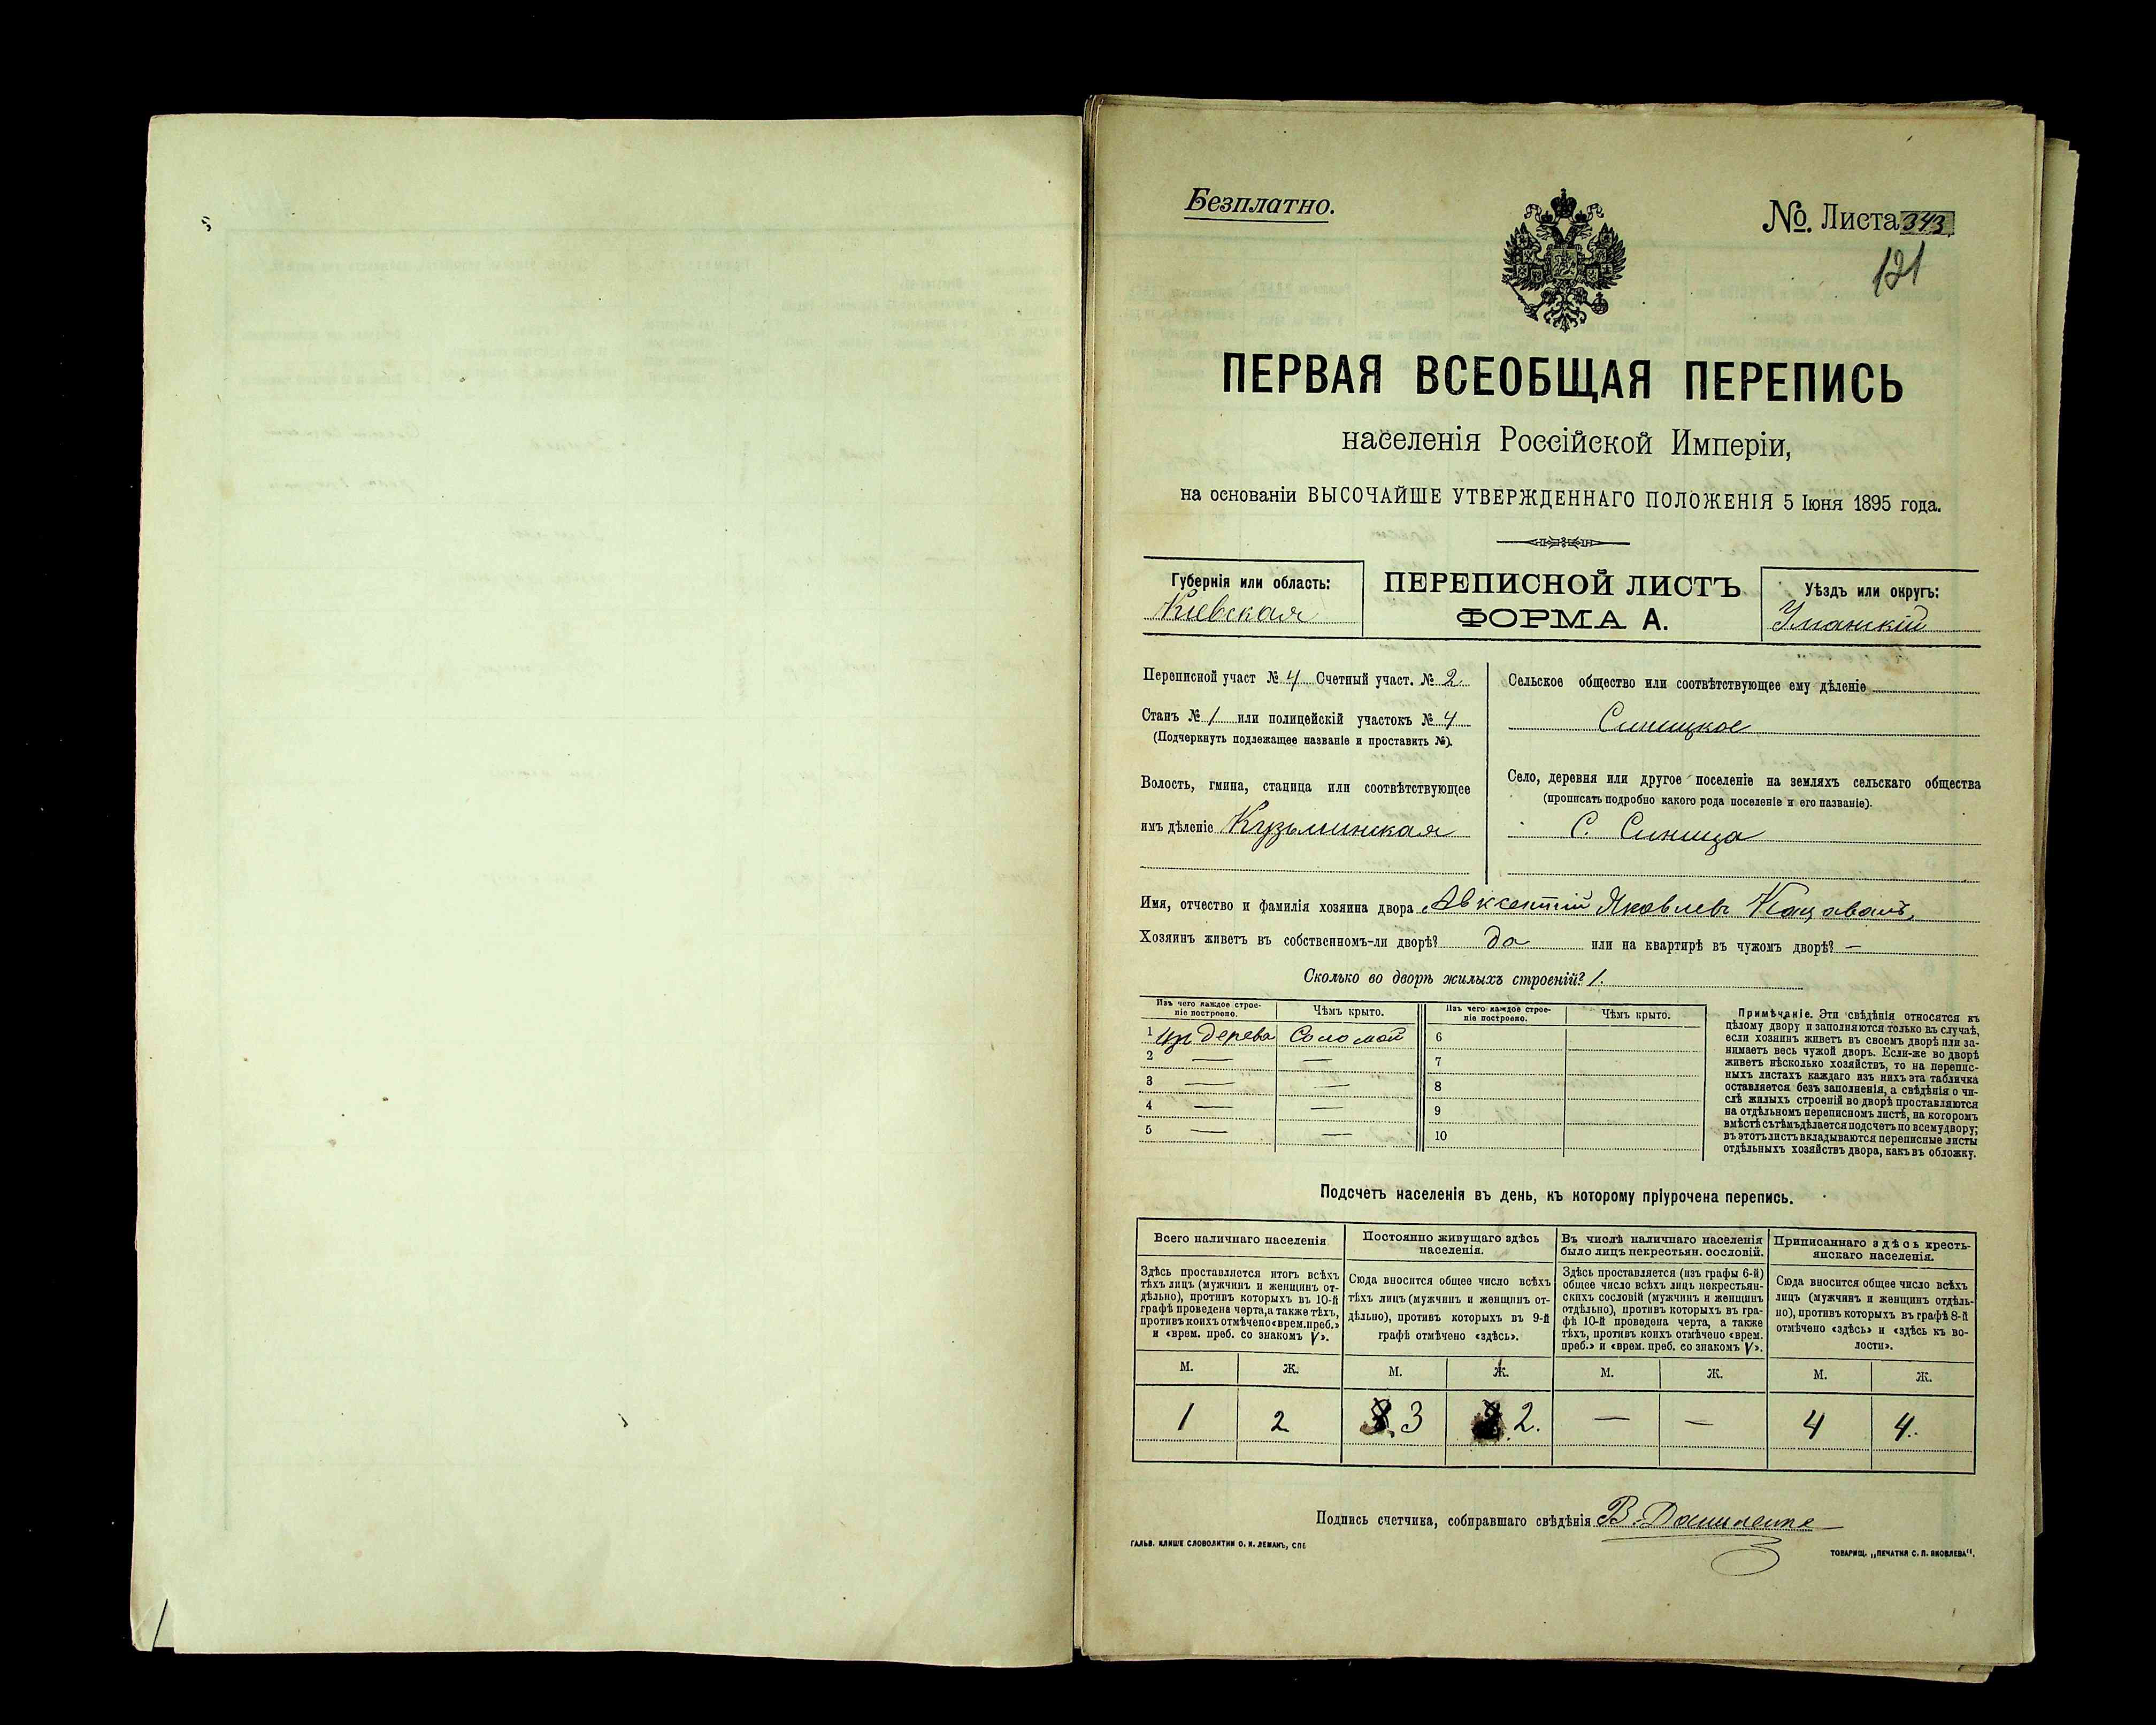 Безплатно.
№. Листа 343
121
ПЕРВАЯ ВСЕОБЩАЯ ПЕРЕПИСЬ
населенія Россійской Имперіи,
на основаніи ВЫСОЧАЙШЕ УТВЕРЖДЕННАГО ПОЛОЖЕНІЯ 5 Іюня 1895 года.
Губернія или область:
Кіевская
ПЕРЕПИСНОЙ ЛИСТЪ
ФОРМА А.
Уѣздъ или округъ:
Уманскій
Переписной участ № 4 Счетный участ. № 2.
Станъ № 1 или полицейскій участокъ № 4
(Подчеркнуть подлежащее названіе и проставить №).
Волость, гмина, станица или соотвѣтствующее
имъ дѣленіе Кузьминская
Сельское общество или соотвѣтствующее ему дѣленіе
Синицкое
Село, деревня или другое поселеніе на земляхъ сельскаго общества
(прописать подробно какого рода поселеніе и его названіе).
С. Синица
Имя, отчество и фамилія хозяина двора Авксентій Яковлевъ
Хозяинъ живетъ въ собственномъ-ли дворѣ? да или на квартирѣ въ чужомъ дворѣ? —
Сколько во дворѣ жилыхъ строеній? 1.
Изъ чего каждое строе-
ніе построено.
Чѣмъ крыто.
Изъ чего каждое строе-
ніе построено.
Чѣмъ крыто.
1 изъ дерева Соломой 6
2 — — 7
3 — — 8
4 — — 9
5 — — 10
Примѣчаніе. Эти свѣдѣнія относятся къ
цѣлому двору и заполняются только въ случаѣ,
если хозяинъ живетъ въ своемъ дворѣ или за-
нимаетъ весь чужой дворъ. Если-же во дворѣ
живетъ нѣсколько хозяйствъ, то на перепис-
ныхъ листахъ каждаго изъ нихъ эта табличка
оставляется безъ заполненія, а свѣдѣнія о чи-
слѣ жилыхъ строеній во дворѣ проставляются
на отдѣльномъ переписномъ листѣ, на которомъ
вмѣстѣ съ тѣмъ дѣлается подсчетъ по всему двору;
въ этотъ листъ вкладываются переписные листы
отдѣльныхъ хозяйствъ двора, какъ въ обложку.
Подсчетъ населенія въ день, къ которому пріурочена перепись.
Всего наличнаго населенія
Здѣсь проставляется итогъ всѣхъ
тѣхъ лицъ (мужчинъ и женщинъ от-
дѣльно), противъ которыхъ въ 10-й
графѣ проведена черта, а также тѣхъ,
противъ коихъ отмѣчено «врем. преб.»
и «врем. преб. со знакомъ V».
Постоянно живущаго здѣсь
населенія.
Сюда вносится общее число всѣхъ
тѣхъ лицъ (мужчинъ и женщинъ от-
дѣльно), противъ которыхъ въ 9-й
графѣ отмѣчено «здѣсь».
Въ числѣ наличнаго населенія
было лицъ некрестьян. сословій.
Здѣсь проставляется (изъ графы 6-й)
общее число всѣхъ лицъ некрестьян-
скихъ сословій (мужчинъ и женщинъ
отдѣльно), противъ которыхъ въ гра-
фѣ 10-й проведена черта, а также
тѣхъ, противъ коихъ отмѣчено «врем.
преб.» и «врем. преб. со знакомъ V».
Приписаннаго здѣсь кресть-
янскаго населенія.
Сюда вносится общее число всѣхъ
лицъ (мужчинъ и женщинъ отдѣль-
но), противъ которыхъ въ графѣ 8-й
отмѣчено «здѣсь» и «здѣсь къ во-
лости».
М. Ж. М. Ж. М. Ж. М. Ж.
1 2 3 2. — — 4 4.
Подпись счетчика, собиравшаго свѣдѣнія В.
ГАЛЬВ. КЛИШЕ СЛОВОЛИТНИ О. И. ЛЕМАНЪ, СПБ
ТОВАРИЩ. „ПЕЧАТНЯ С. П. ЯКОВЛЕВА".